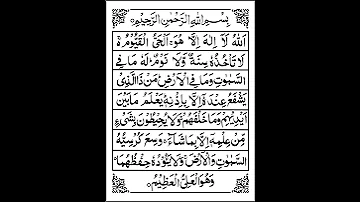 بِسْمِ اللهِ الرَّحْمٰنِ الرَّحِيْمِ
اَللهُ لَا اِلٰهَ اِلَّا هُوَ اَلْحَىُّ الْقَيُّوْمُ ۚ
لَا تَاْخُذُهٗ سِنَةٌ وَّلَا نَوْمٌ ؕ لَهٗ مَا فِى
السَّمٰوٰتِ وَمَا فِى الْاَرْضِ ؕ مَنْ ذَا الَّذِىْ
يَشْفَعُ عِنْدَهٗۤ اِلَّا بِاِذْنِهٖ ؕ يَعْلَمُ مَا بَيْنَ
اَيْدِيْهِمْ وَمَا خَلْفَهُمْ ۚ وَلَا يُحِيْطُوْنَ بِشَىْءٍ
مِّنْ عِلْمِهٖۤ اِلَّا بِمَا شَآءَ ۚ وَسِعَ كُرْسِيُّهُ
السَّمٰوٰتِ وَالْاَرْضَ ۚ وَلَا يَـُٔوْدُهٗ حِفْظُهُمَا ۚ
وَهُوَ الْعَلِىُّ الْعَظِيْمُ ۝